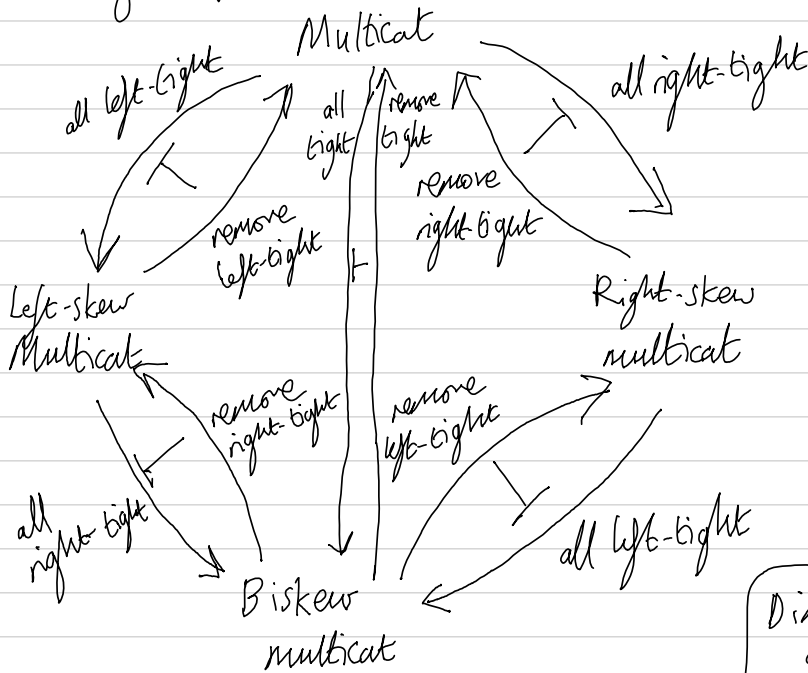 Multicat
all left-tight
all right-tight
all
tight
remove
tight
remove
left-tight
remove
right-tight
Left-skew
Multicat
Right-skew
multicat
remove
right-tight
remove
left-tight
all
right-tight
all left-tight
Biskew
multicat